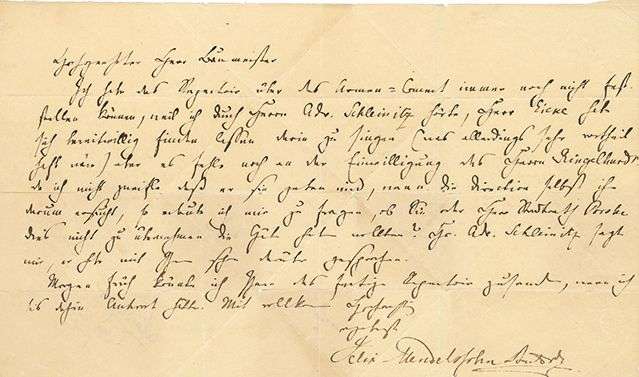 Hochgeehrter Herr Baumeister
Ich habe das Repertoir über das Armen=Concert immer noch nicht fest-
stellen können, weil ich durch Herrn Adv. Schleinitz hörte, Herr Eicke habe
sich bereitwillig finden lassen darin zu singen (was allerdings sehr vortheil
haft wäre) aber es fehle noch an der Einwilligung des Herrn Ringelhardt
da ich nicht zweifle daß er sie geben wird, wenn die direction selbst ihn
darum ersucht, so erlaube ich mir zu fragen, ob Sie oder Herr Stadtrath Porsche
dies nicht zu übernehmen die Güte haben wollten? Hr. Adv. Schleinitz sagt
mir, er habe mit Ihnen schon heute gesprochen.
Morgen früh könnte ich Ihnen das fertige Repertoir zusenden, wenn ich
bis dahin Antwort hätte. Mit vollkom Hochacht
ergebenst
Felix Mendelssohn Bartholdy